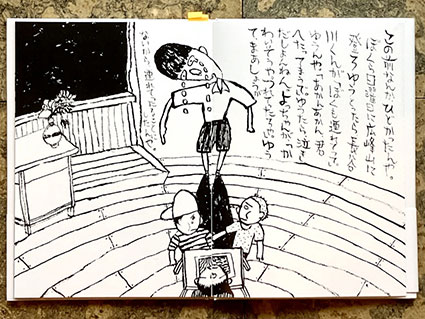 この前なんかひどかったんや。
ぼくら日曜日に広峰山に
登ろゆうとったら長谷
川くんが「ぼくも連れてって」
ゆうんや。「あかんあかん 君
へたってまうで」ゆうたら、泣き
だしよんねん。よっちゃんが「か
わいそうやつれてたろ」てゆう
てまあしょうが
ないから 連れてったったんや。